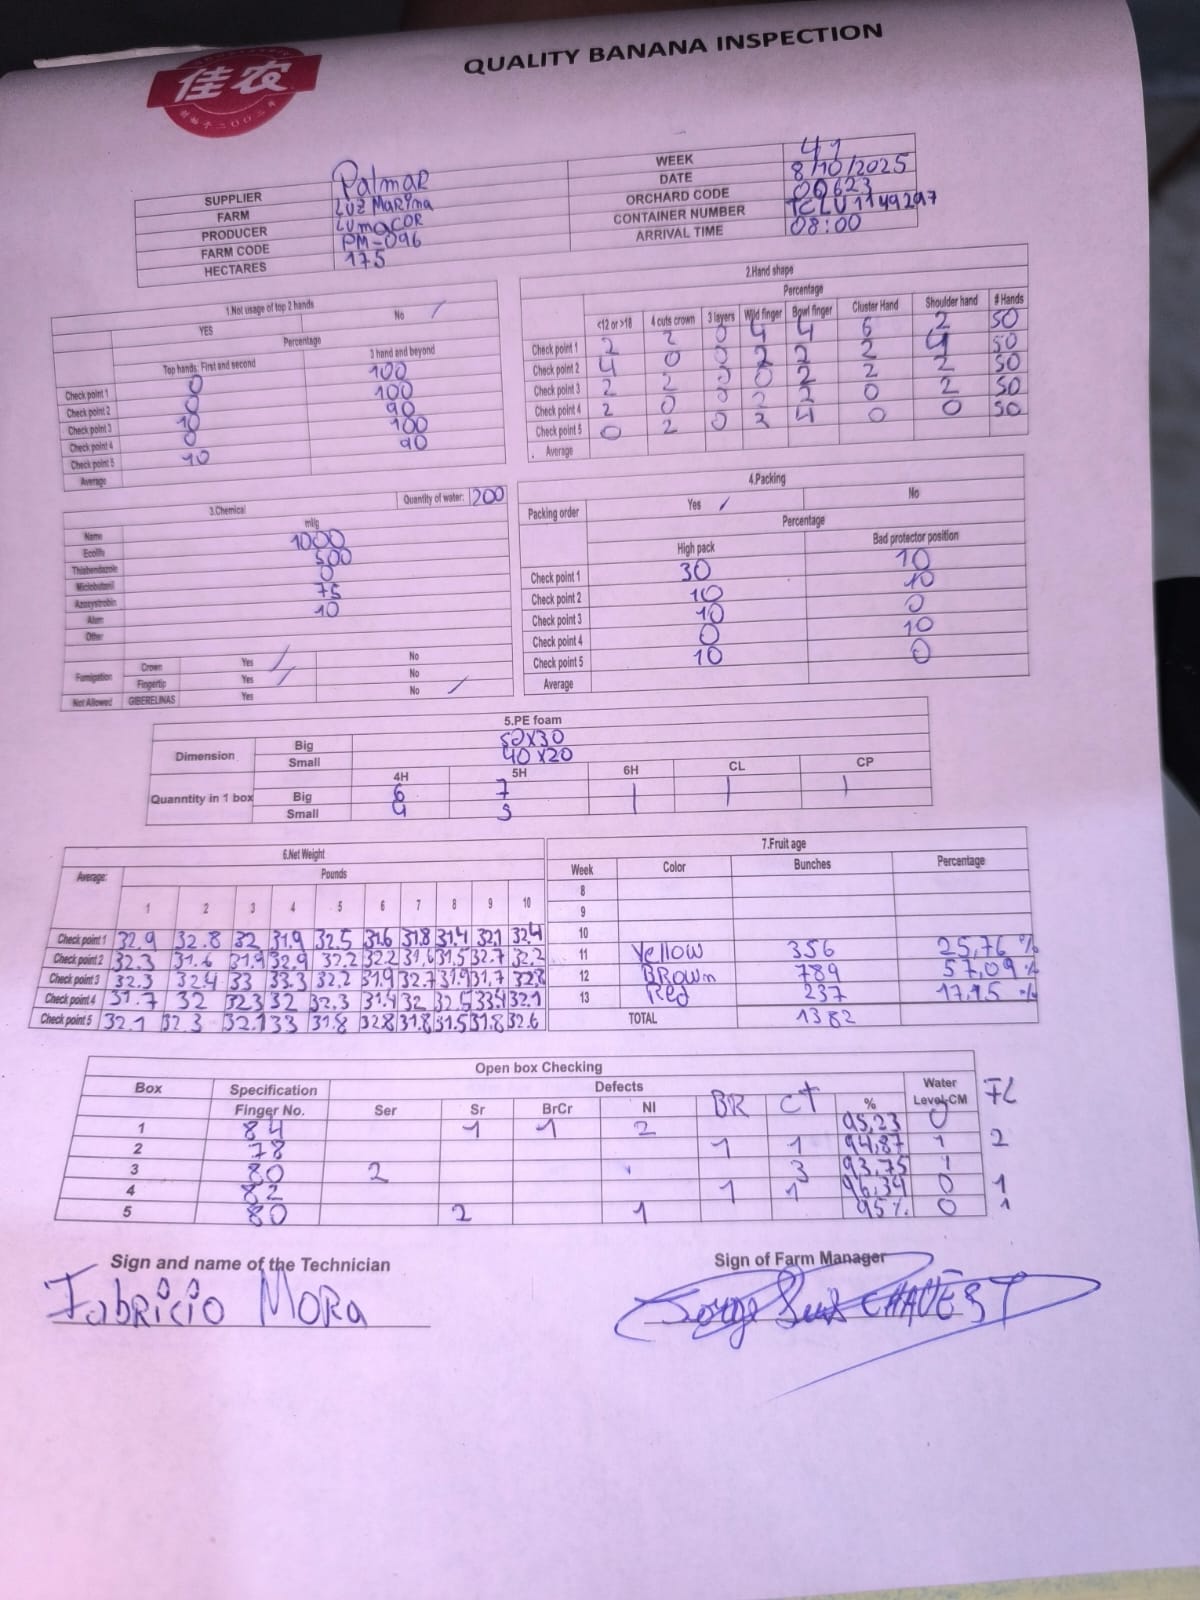 佳农
QUALITY BANANA INSPECTION
SUPPLIER Palmar WEEK 41
FARM Luz Marina DATE 8/10/2025
PRODUCER Lumacor ORCHARD CODE 00623
FARM CODE PM-096 CONTAINER NUMBER TCLU1149297
HECTARES 175 ARRIVAL TIME 08:00
1.Not usage of top 2 hands
YES No /
Percentage
Top hands: First and second 3 hand and beyond
Check point 1 0 100
Check point 2 0 100
Check point 3 10 90
Check point 4 0 100
Check point 5 10 90
Average
2.Hand shape
Percentage
<12 or >18 4 cuts crown 3 layers Wild finger Bowl finger Cluster Hand Shoulder hand # Hands
Check point 1 2 2 0 4 4 6 2 50
Check point 2 4 0 0 2 2 2 4 50
Check point 3 2 2 0 0 2 2 2 50
Check point 4 2 0 0 2 2 0 2 50
Check point 5 0 2 0 2 4 0 0 50
Average
3.Chemical Quantity of water: 200
Name ml/g
Ecolife 1000
Thiabendazole 500
Miclobutanil 0
Azoxystrobin 75
Alum 10
Other
Fumigation Crown Yes / No
Fingertip Yes / No
Not Allowed GIBERELINAS Yes No /
4.Packing
Packing order Yes / No
Percentage
High pack Bad protector position
Check point 1 30 10
Check point 2 10 10
Check point 3 10 0
Check point 4 0 10
Check point 5 10 0
Average
5.PE foam
Dimension Big 52x30
Small 40x20
4H 5H 6H CL CP
Quanntity in 1 box Big 6 7
Small 4 3
6.Net Weight
Average: Pounds
1 2 3 4 5 6 7 8 9 10
Check point 1 32.9 32.8 32 31.9 32.5 31.6 31.8 31.4 32.1 32.4
Check point 2 32.3 31.6 31.9 32.9 32.2 32.2 31.6 31.5 32.7 32.2
Check point 3 32.3 32.4 33 33.3 32.2 31.9 32.7 31.9 31.7 32.8
Check point 4 31.7 32 32.3 32 32.3 31.4 32 32.5 33.4 32.1
Check point 5 32.1 32.3 32.1 33 31.8 32.8 31.8 31.5 31.8 32.6
7.Fruit age
Week Color Bunches Percentage
8
9
10
11 Yellow 356 25,76 %
12 BROWN 789 57,09 %
13 Red 237 17,15 %
TOTAL 1382
Open box Checking
Box Specification Defects Water
Finger No. Ser Sr BrCr NI BR CT % Level-CM FL
1 84 1 1 2 95,23 0
2 78 1 1 94,87 1 2
3 80 2 3 93,75 1
4 82 1 1 96,34 0 1
5 80 2 1 95% 0 1
Sign and name of the Technician Sign of Farm Manager
Fabricio Mora Jorge Luis CHAVEST